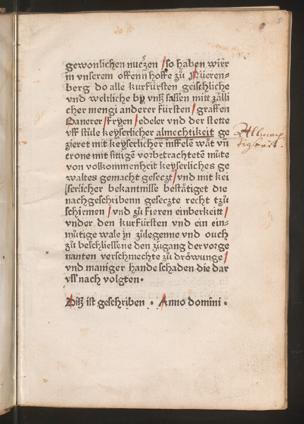 gewonlichen nuczen / so haben wier
in vnserem offenn hoffe zů Nüeren-
berg do alle kurfürsten geischliche
vnd weltliche by vnß sassen mitt zälli
cher mengi anderer fürsten / graffen
/ fryen / edeler vnd der stette
vff stůle keyserlicher almechtikeit ge
zieret mit keyserlicher
crone mit sittigē vorbetrachtetē můte
von volkommenheit keyserliches ge
waltes gemacht geseczt / vnd mit kei
serlicher bekantnisse bestätiget die
nachgeschribenn geseczte recht tzů
schirmen / vnd zů fieren einberkeitt /
vnder den kurfürsten vnd ein ein-
mütige wale in zůlegenne vnd ouch
zů beschliessene den zugang der vorge
nanten verschmechte zů dröwunge /
vnd maniger hande schaden die dar
vß nach volgten ·
Diß ist geschriben · Anno domini ·